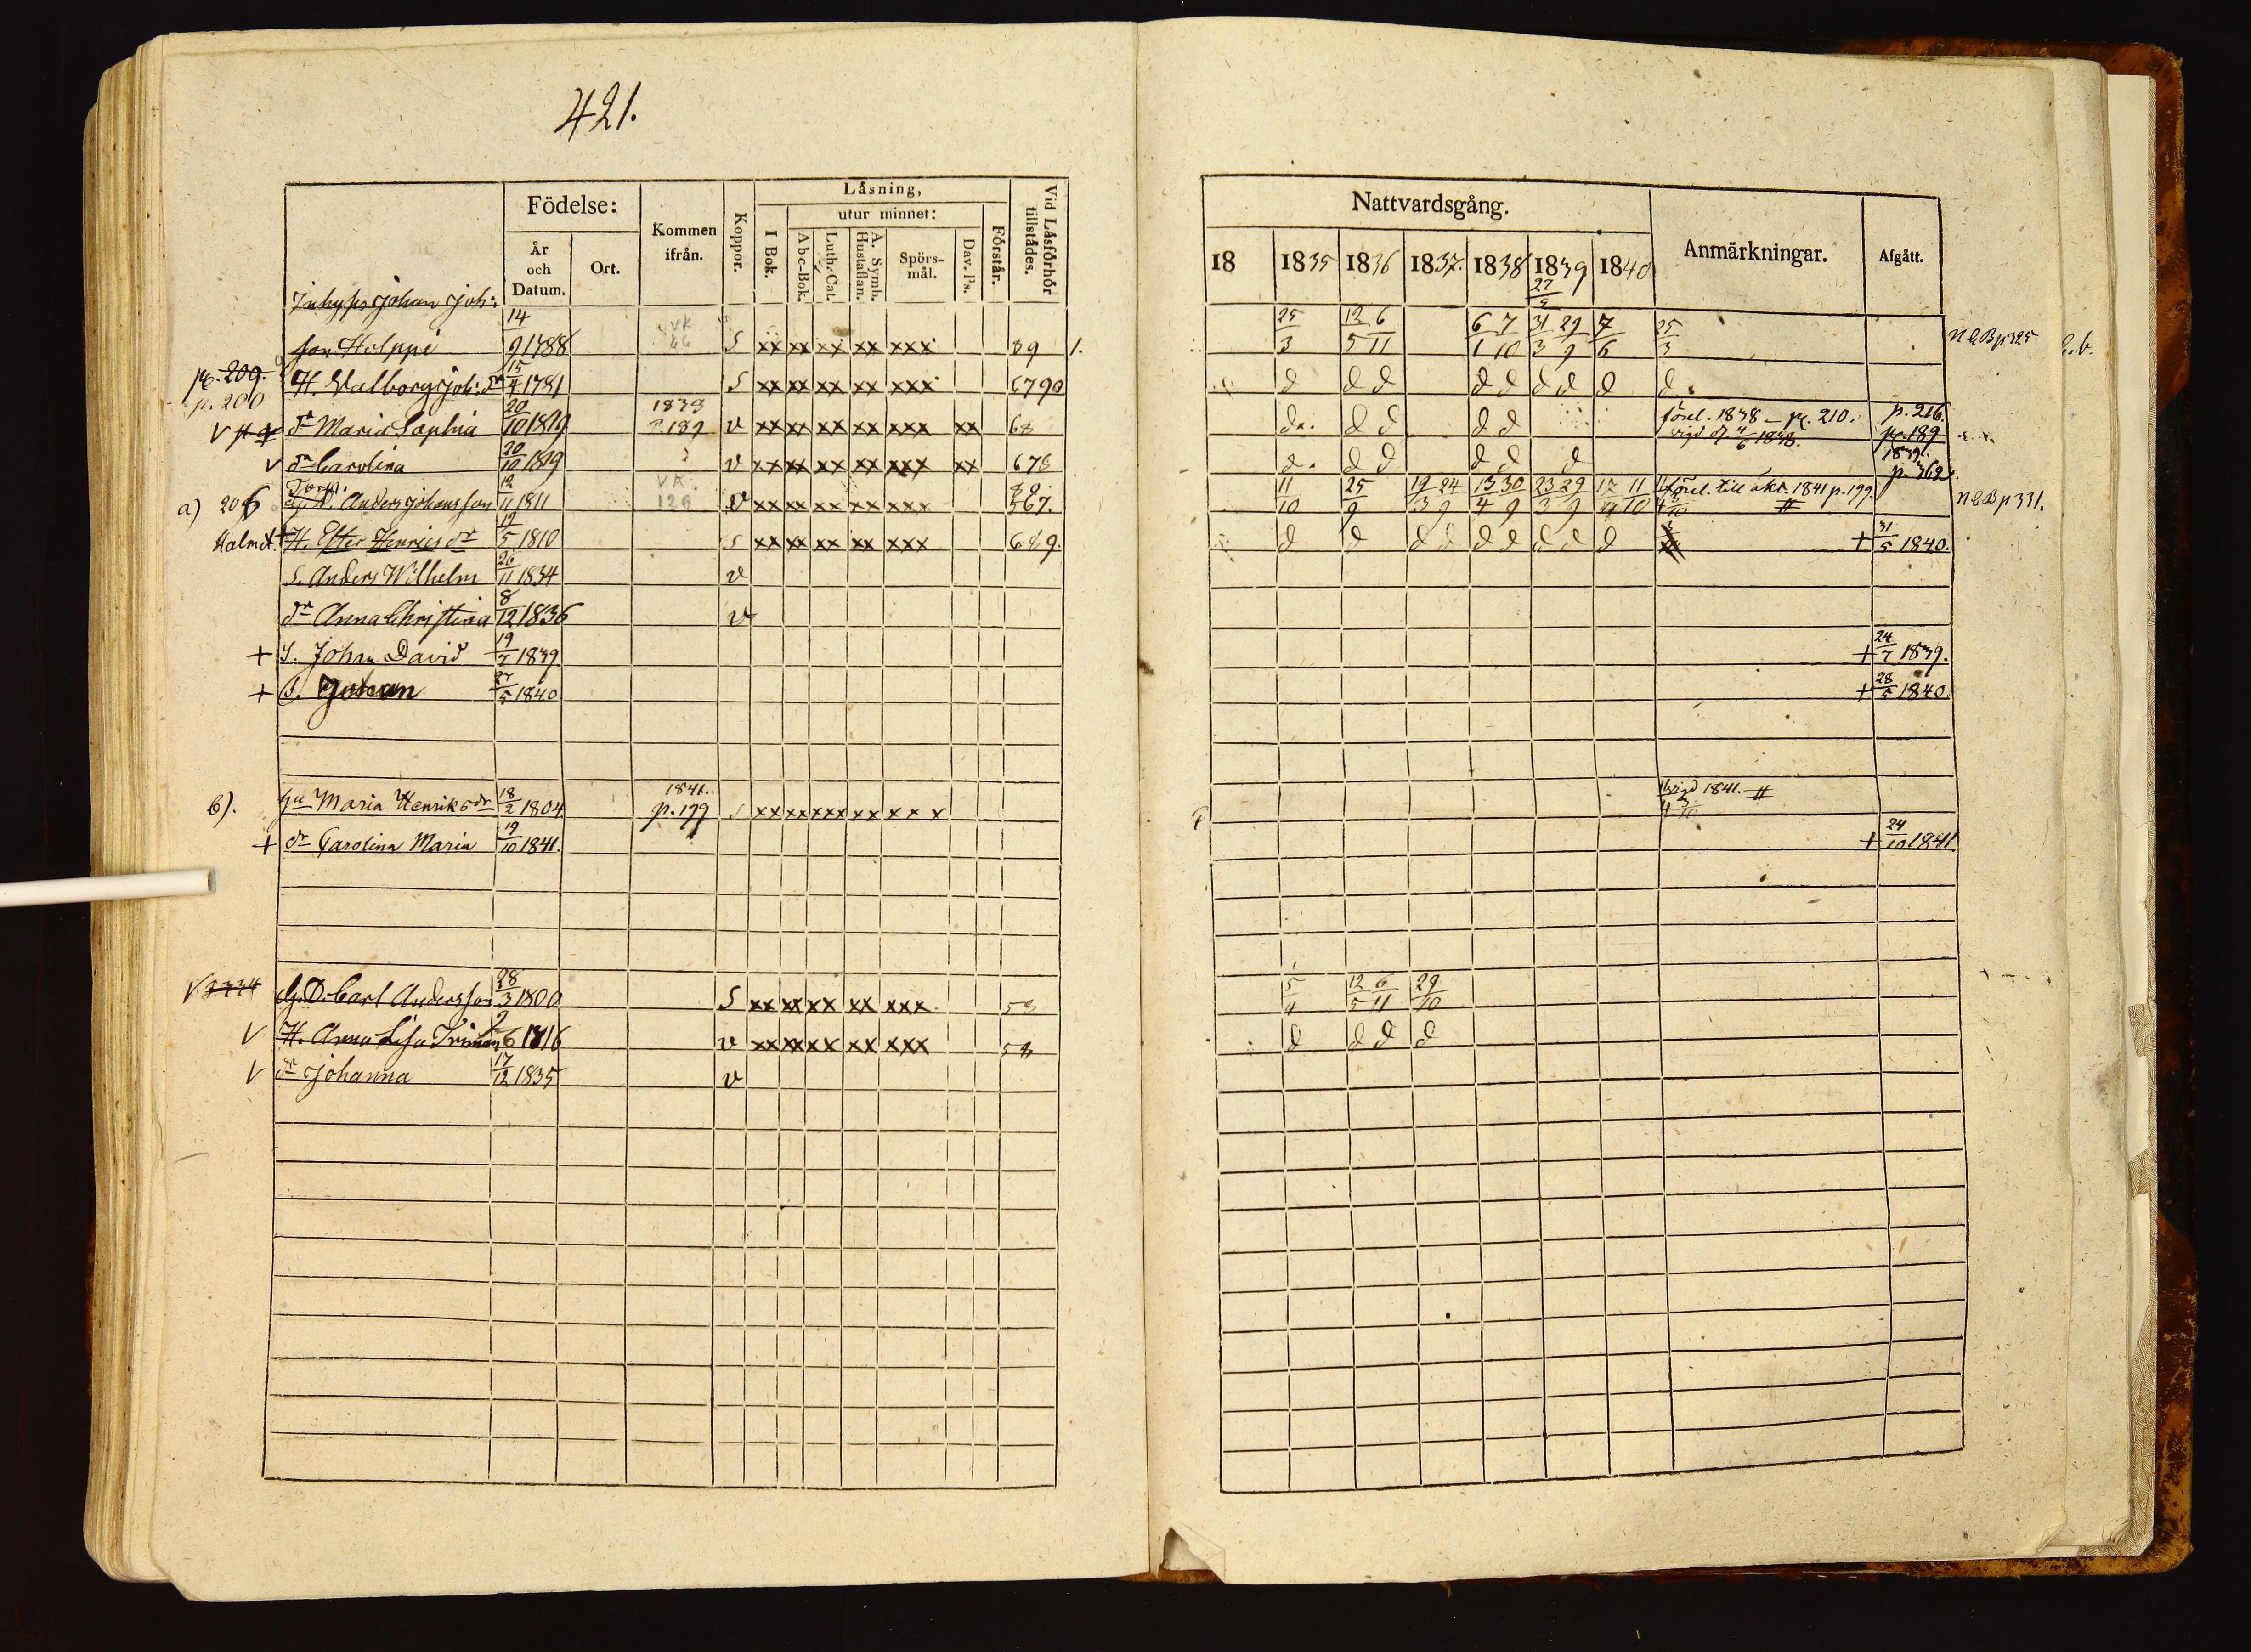 421.
Födelse:
År och Datum.
Ort.
Kommen ifrån.
Koppor.
Läsning,
I Bok.
utur minnet:
Abc-Bok.
Luth. Cat.
A. Symb. Hustaflan.
Spörs-mål.
Dav. Ps.
Förstår.
Vid Läsförhör tillstådes.
Nattvardsgång.
18 1835 1836 1837. 1838 1839 1840
27/5
Anmärkningar.
Afgått.
Inhyses Johan Joh:
son Holppi 14/9 1788 VK. 66 S xx xx xx xx xxx 89 1. 25/3 12/5 6/11 6/1 7/10 31/3 29/9 7/6 25/3 NCB p 325
p. 209. H. Valborg Joh: dr 15/4 1781 S xx xx xx xx xxx 6790 d d d d d d d d d
p. 200
V dr Maria Sophia 20/10 1819 1839 p 189 v xx xx xx xx xxx xx 68 d. d d d d förel. 1838 – p. 210. p. 216.
vigd d. 4/6 1838. p. 189
V dr Carolina 20/10 1819 v xx xx xx xx xxx xx 678 d. d d d d d 1839. p. 362.
a) 206 Torp. Anders Johansson 12/11 1811 VK. 129 v xx xx xx xx xxx 567. 11/10 25/9 19/3 24/9 15/4 30/9 23/3 29/9 17/4 11/10 förel. till äkt. 1841 p. 199. # NCB p 331.
Halmet. H. Ester Henrics dr 19/5 1810 S xx xx xx xx xxx 689. d d d d d d d d d + 31/5 1840.
S. Anders Wilhelm 26/11 1834 v
dr Anna Christina 8/12 1836 v
+ S. Johan David 19/7 1839 + 24/7 1839.
+ S. 27/5 1840 + 28/5 1840.
b). hu Maria Henriks dr 18/2 1804 1841. p. 199 S xx xx xxx xx x x x vigd 1841. #
+ dr Carolina Maria 19/10 1841. + 24/10 1841
V Carl Andersson 28/3 1800 S xx xx xx xx xxx 58 5/4 12/5 6/11 29/10
V H. Anna Lisa 2/6 1816 v xx xx xx xx xxx 58 d d d d
V dr Johanna 17/12 1835 v